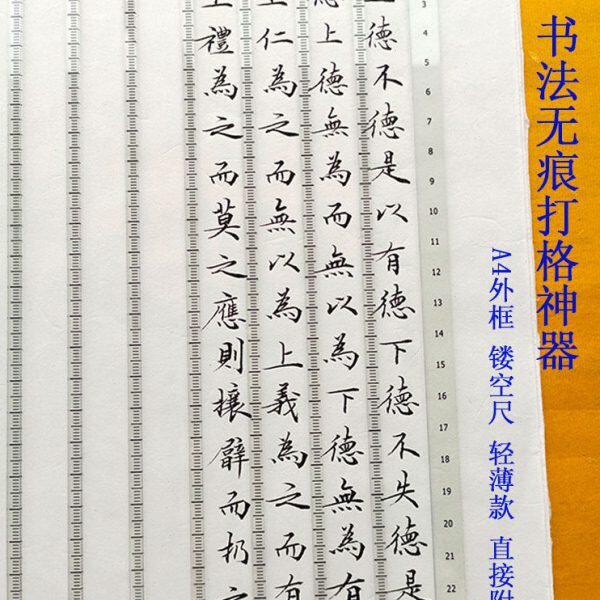 书法无痕打格神器
A4外框 镂空尺 轻薄款 直接附
3
4
5
6
7
8
9
10
11
12
13
14
15
16
17
18
19
20
21
22
德不德是以有德下德不失德是
上德無為而無以為下德無為有
仁為之而無以為上義為之而有
禮為之而莫之應則攘臂而扔之